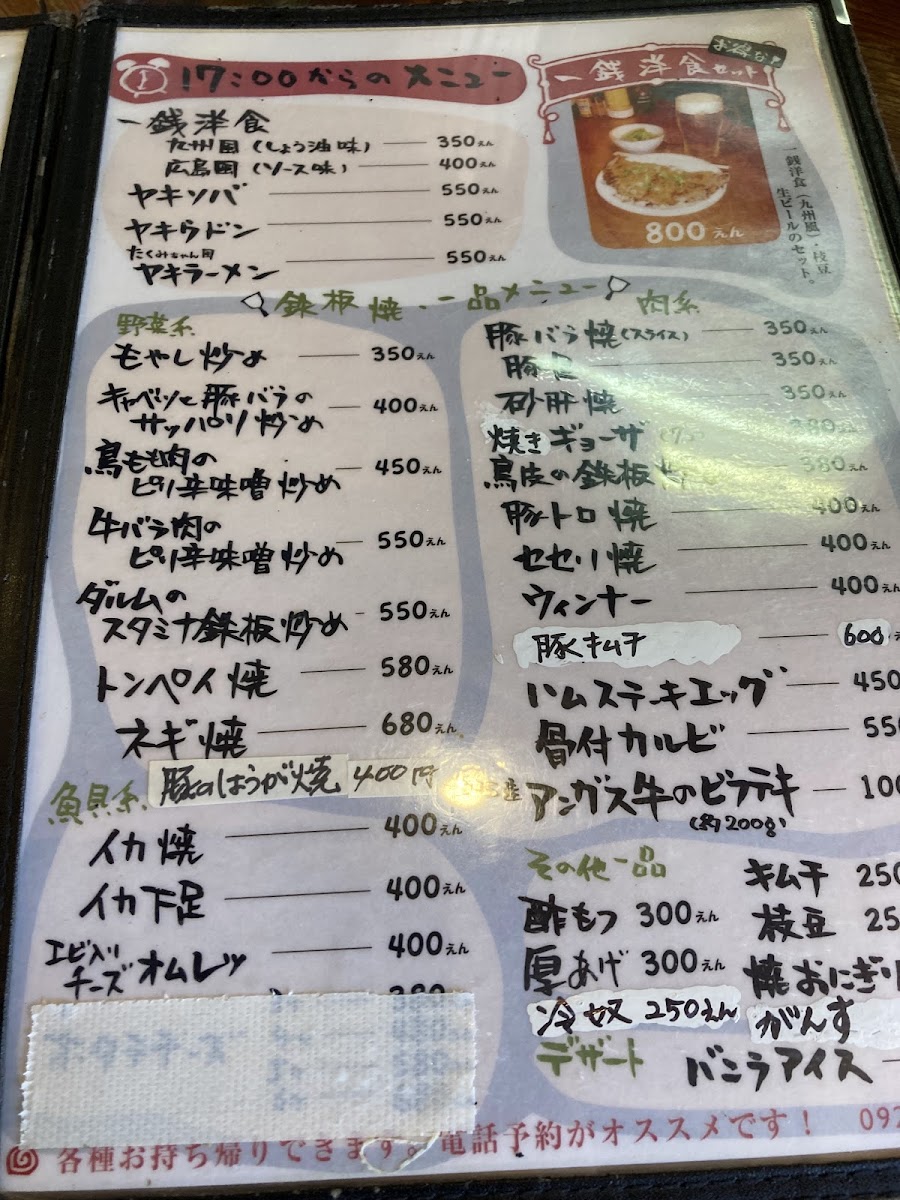 17:00からのメニュー
一銭洋食
九州風(しょう油味) 350えん
広島風(ソース味) 400えん
ヤキソバ 550えん
ヤキウドン 550えん
たくみちゃん風
ヤキラーメン 550えん
お得な!
一銭洋食セット
800えん
一銭洋食(九州風)・枝豆
生ビールのセット。
鉄板焼・一品メニュー
野菜系
もやし炒め 350えん
キャベツと豚バラの
サッパリ炒め 400えん
鳥もも肉の
ピリ辛味噌炒め 450えん
牛バラ肉の
ピリ辛味噌炒め 550えん
ダルムの
スタミナ鉄板炒め 550えん
トンペイ焼 580えん
ネギ焼 680えん
豚のしょうが焼 400円
魚貝系
イカ焼 400えん
イカ下足 400えん
エビ入り
チーズオムレツ 400えん
380
肉系
豚バラ焼(スライス) 350えん
豚 350えん
砂肝焼 350えん
焼きギョーザ 380えん
鳥皮の鉄板 380えん
豚トロ焼 400えん
セセリ焼 400えん
ウィンナー 400えん
豚キムチ 600
ハムステーキエッグ 450
骨付カルビ 55
アンガス牛のビフテキ 100
(約200g)
その他一品
酢もつ 300えん
厚あげ 300えん
冷奴 250えん
キムチ 250
枝豆 25
焼おにぎり
がんす
デザート
バニラアイス
各種お持ち帰りできます。電話予約がオススメです! 092